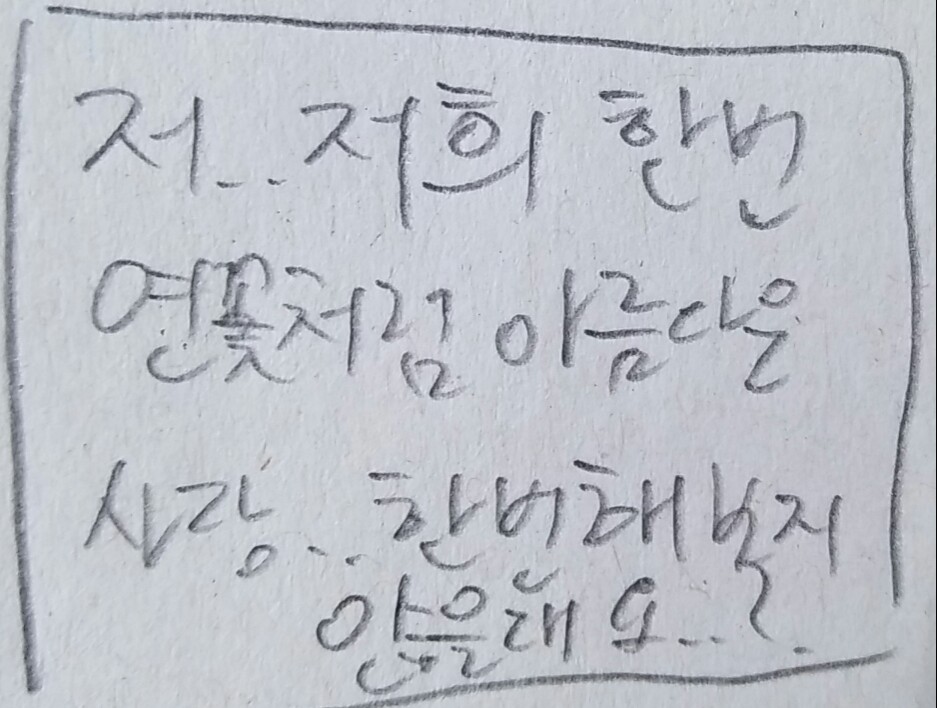 저... 저희 한번
연꽃처럼 아름다운
사랑... 한번 해보지
않을래요...?